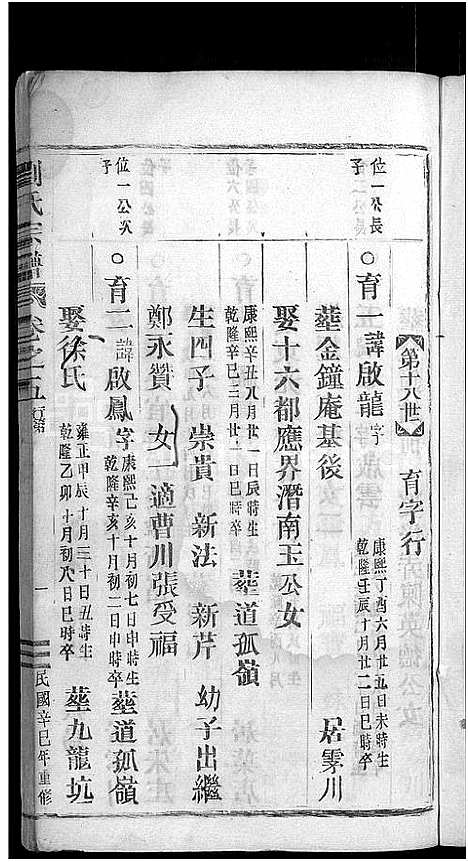 第十八世 育字行
位一公長子
○育一諱啟龍字
康熙丁酉六月廿五日未時生
乾隆壬辰十月廿二日巳時卒
葬金鐘庵基後 居雩川
娶十六都應界潛南玉公女
康熙辛丑九月廿一日辰時生
乾隆辛巳三月廿二日巳時卒
葬道孤嶺
生四子 崇貴 新法 新芹 幼子出繼
鄭永贊 女一適曹川張受福
位一公次子
○育二諱啟鳳字
康熙己亥十月初七日申時生
乾隆辛亥十月初二日申時卒
葬道孤嶺
娶徐氏
雍正甲辰十月三十日丑時生
乾隆乙卯十月初八日巳時卒
葬九龍坑
劉氏宗譜 卷之五
一
民國辛巳年重修